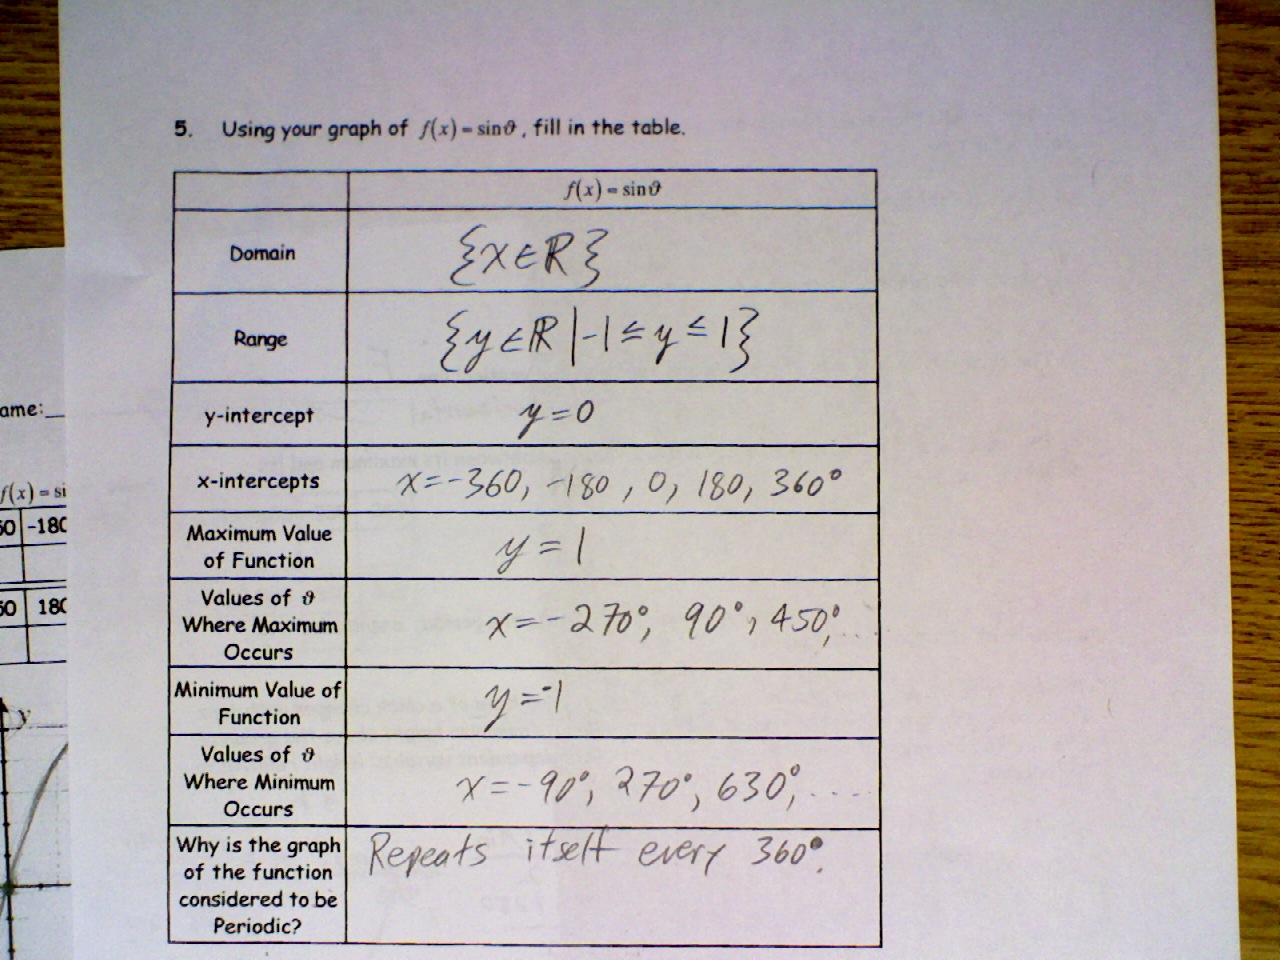 5. Using your graph of f(x) = sinϑ, fill in the table.
f(x) = sinϑ
Domain {x∈ℝ}
Range {y∈ℝ|-1≤y≤1}
y-intercept y=0
x-intercepts x=-360, -180, 0, 180, 360°
Maximum Value
of Function y=1
Values of ϑ
Where Maximum x=-270°, 90°, 450°,....
Occurs
Minimum Value of
Function y=-1
Values of ϑ
Where Minimum x=-90°, 270°, 630°,....
Occurs
Why is the graph Repeats itself every 360°.
of the function
considered to be
Periodic?
ame:_
f(x) = si
60 -180
60 180
y